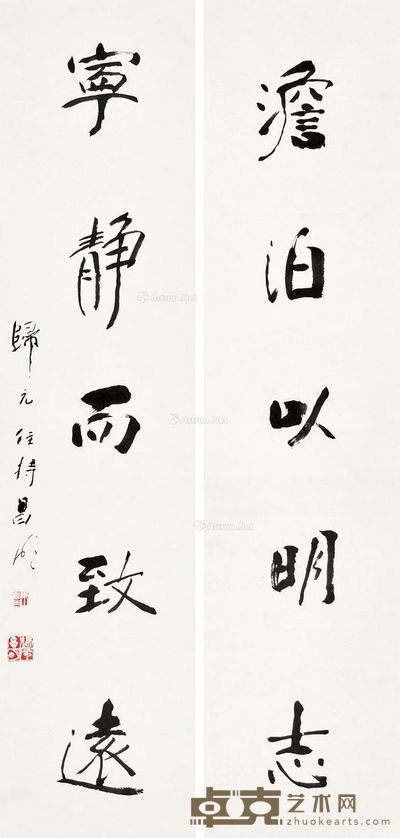 澹泊以明志
寧靜而致遠
歸元住持昌明
Artron.Net
Artron.Net
Artron.Net
卓克艺术网
zhuokearts.com